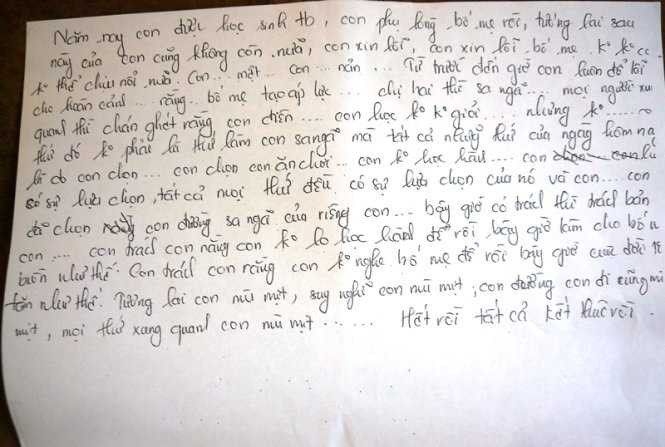 Năm nay con được học sinh tb, con phụ lòng bố mẹ rồi, tương lai sau
này của con cũng không còn nữa, con xin lỗi, con xin lỗi bố mẹ k° k°
k° thể chịu nổi nữa. Con... mệt... con... nản... Từ trước đến giờ con luôn đổ lỗi
cho hoàn cảnh... rằng... bố mẹ tạo áp lực... chị hai thì sa ngã... mọi người xu
quanh thì chán ghét rằng con điên.... con học k° k° giỏi.... nhưng k°......
thứ đó k° phải là thứ làm con sa ngã mà tất cả những thứ của ngày hôm na
là do con chọn... con chọn con ăn chơi... con k° học hành.... con
có sự lựa chọn, tất cả mọi thứ đều có sự lựa chọn của nó và con... con
đã chọn con đường sa ngã của riêng con... bây giờ có trách thì trách bản
con.... con trách con rằng con k° lo học hành để rồi bây giờ làm cho bố
buồn như thế. Con trách con rằng con k° nghe bố mẹ để rồi bây giờ cuộc đời
tàn như thế. Tương lai con mù mịt, suy nghĩ con mù mịt, con đường con đi cũng mù
mịt, mọi thứ xung quanh con mù mịt...... Hết rồi tất cả kết thúc rồi.